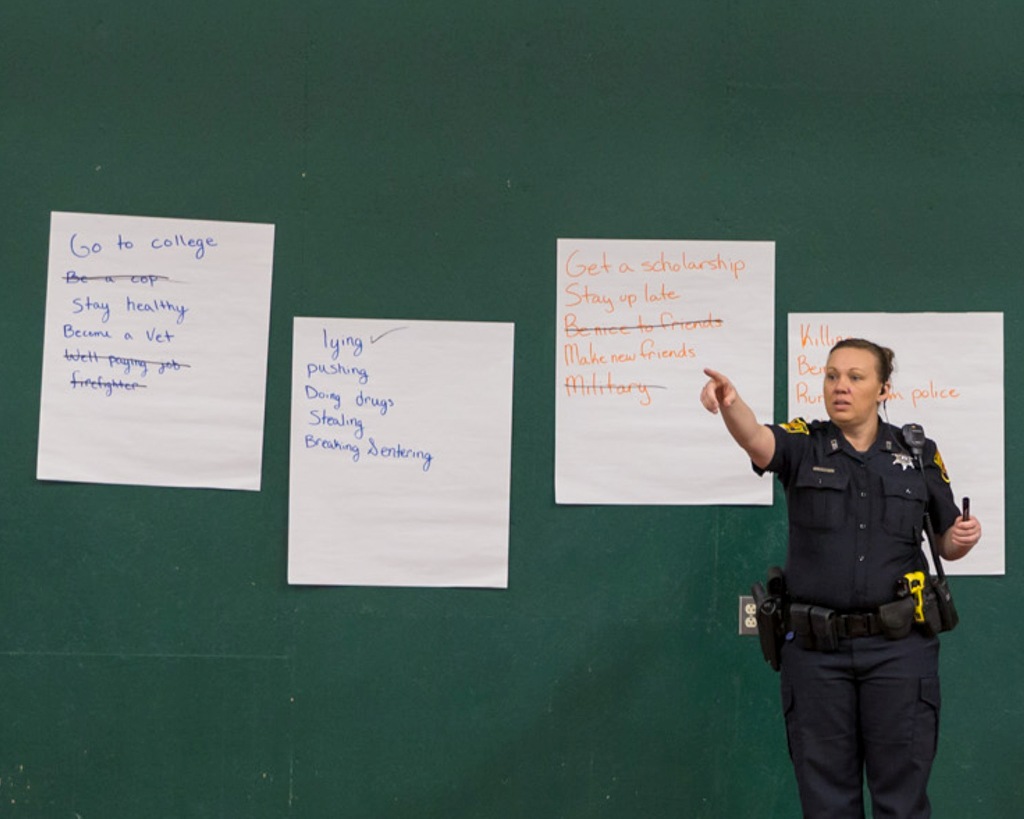 Go to college
Be a cop
Stay healthy
Become a Vet
Well paying job
firefighter
lying ✓
pushing
Doing drugs
Stealing
Breaking &entering
Get a scholarship
Stay up late
Be nice to friends
Make new friends
Military
police